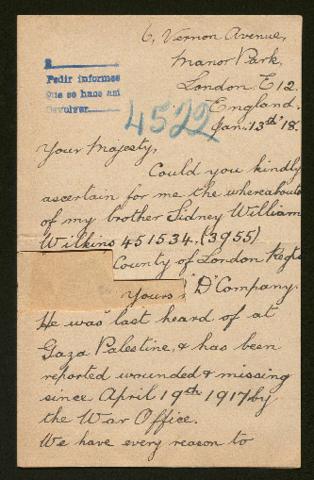 6, Vernon Avenue,
Manor Park,
London. E 12.
England.
Jan: 13th '18.
Pedir informes
que se haga así
Devolver
4522
Your Majesty,
Could you kindly
ascertain for me the whereabouts
of my brother Sidney William
Wilkins 451534. (3955)
County of London Regt.
Yours, "D" Company.
He was last heard of at
Gaza Palestine, & has been
reported wounded & missing
since April 19th 1917 by
the War Office.
We have every reason to